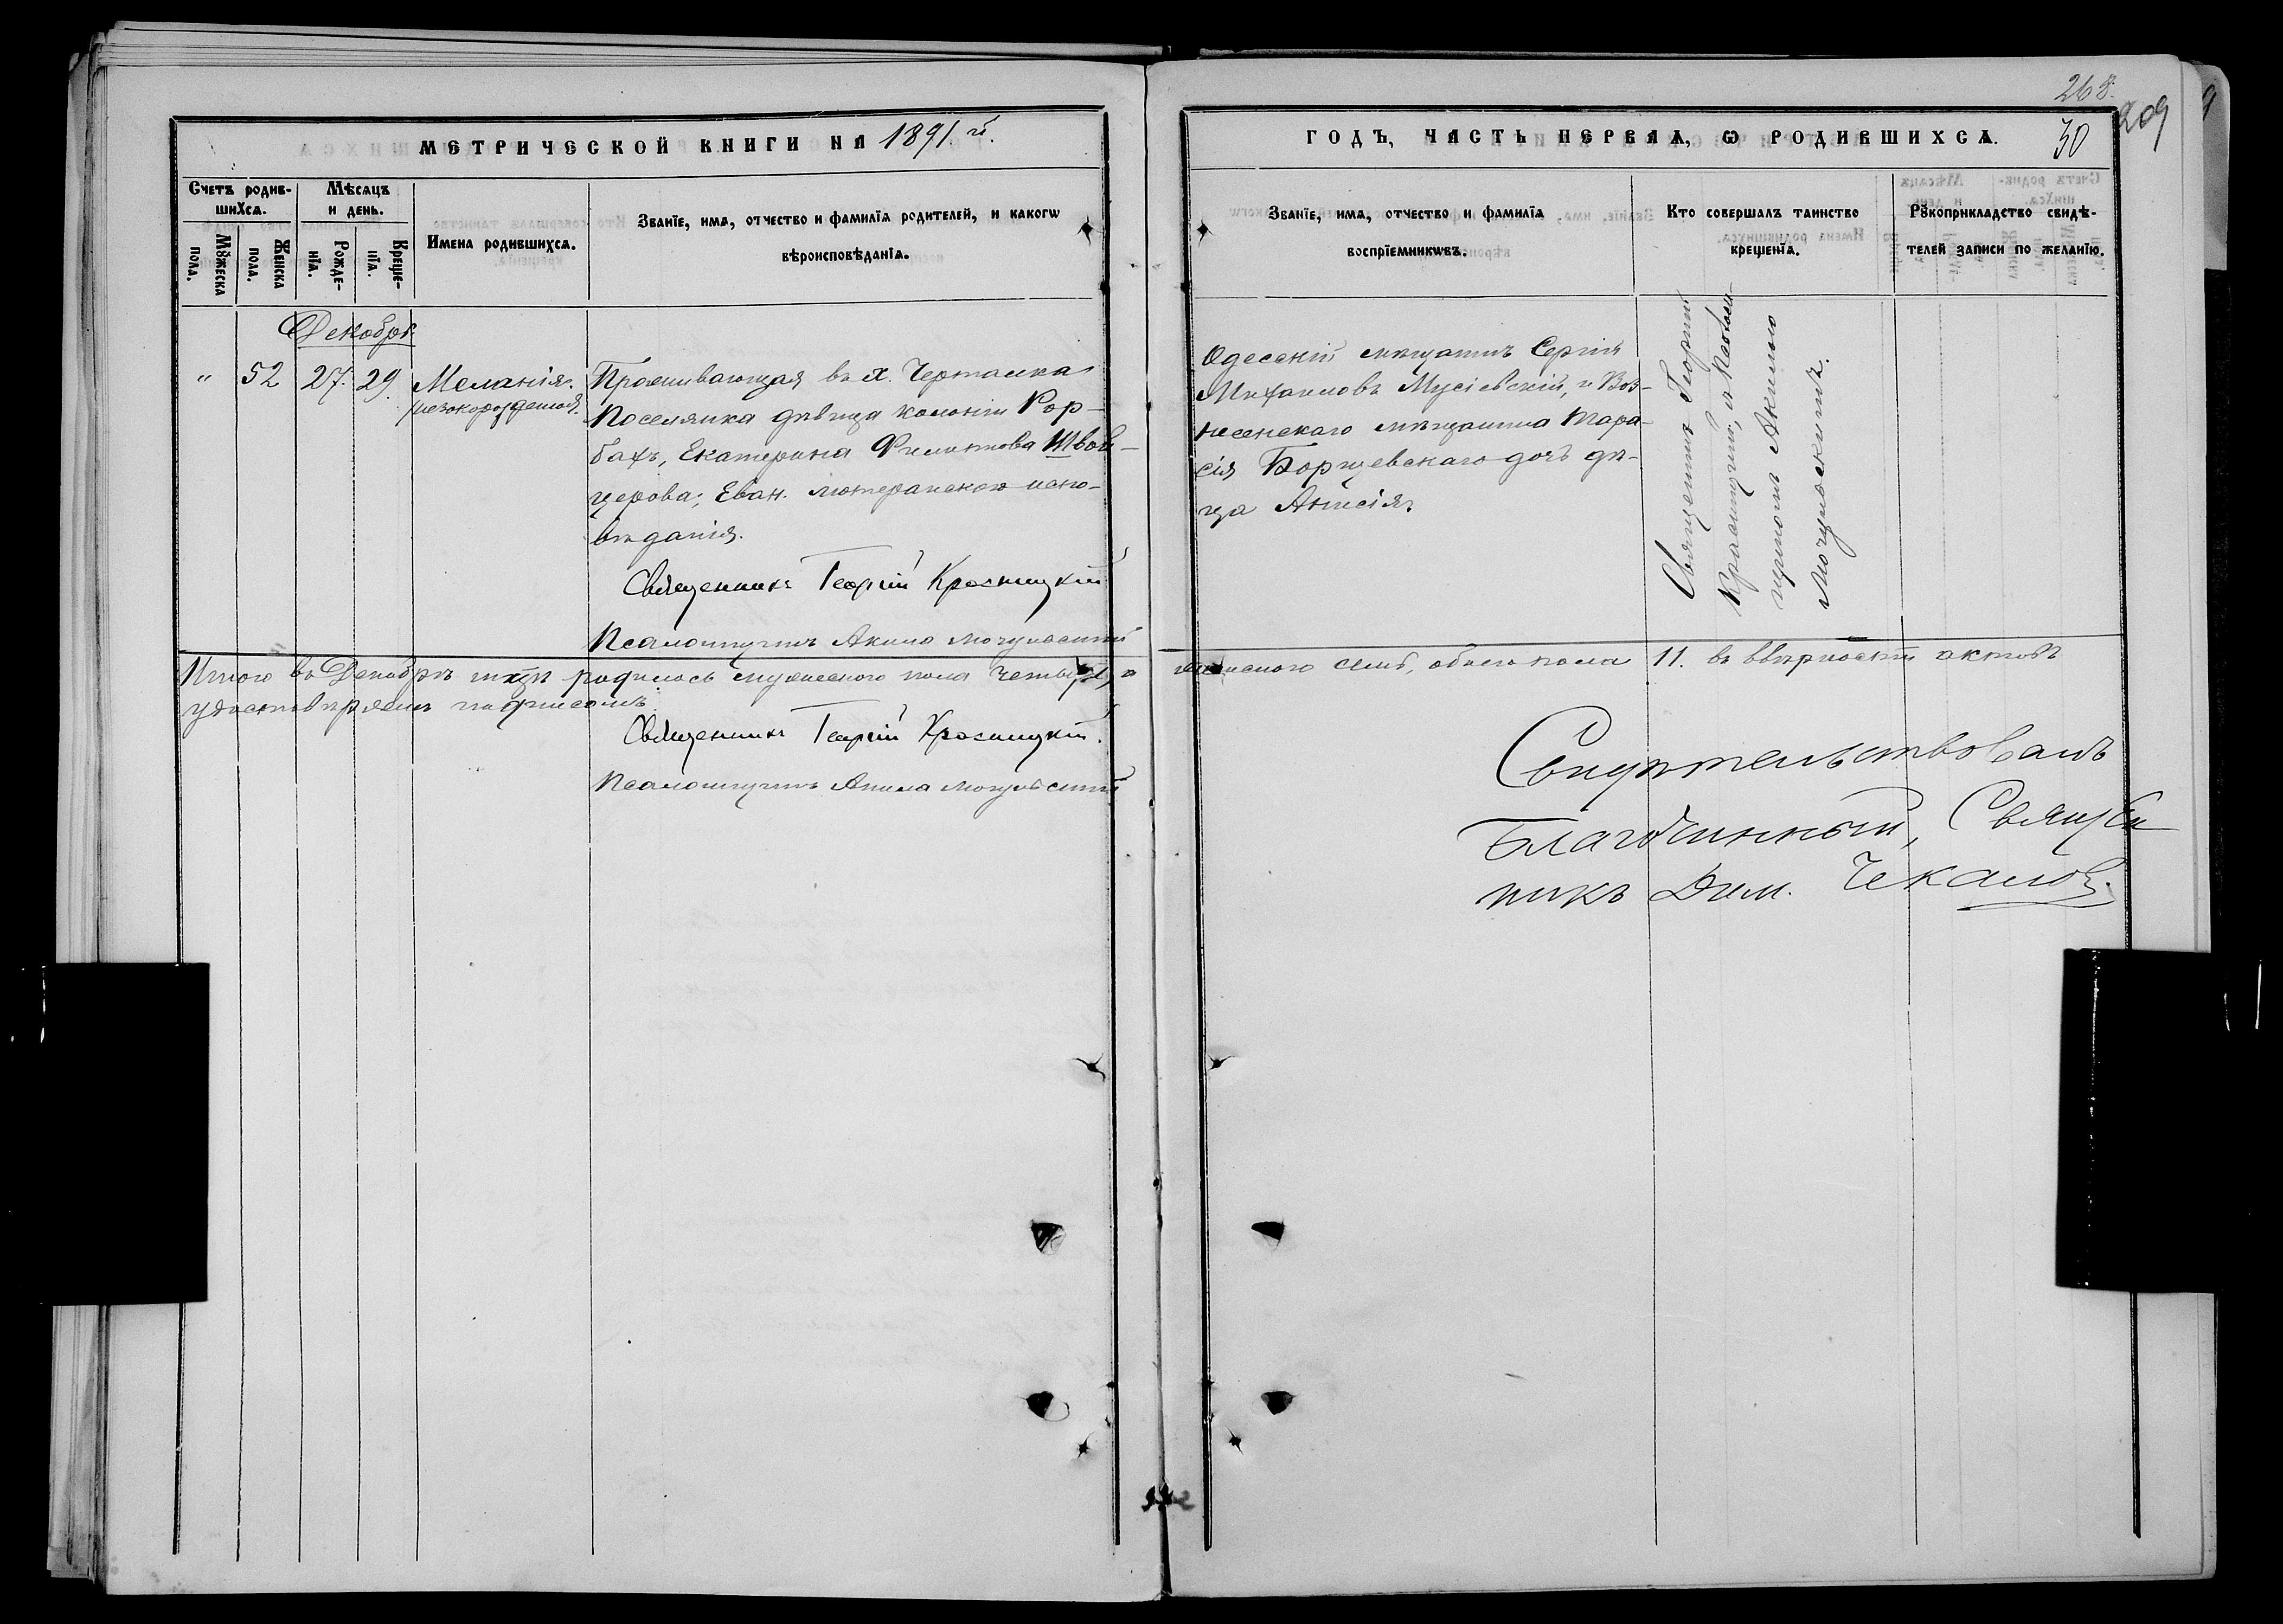 268.
209
30
МЕТРИЧЕСКОЙ КНИГИ НА 1891 й.
ГОДЪ, ЧАСТЬ ПЕРВАЯ, Ѡ РОДИВШИХСЯ.
Счетъ родив-
шихся.
Мѣсяцъ
и день.
Мꙋжеска
пола.
Женска
пола.
Рожде-
нїя.
Креще-
нїя.
Имена родившихся.
Званїе, имя, отчество и фамилїя родителей, и какогѡ
вѣроисповѣданїя.
Званїе, имя, отчество и фамилїя
воспрїемникѡвъ.
Кто совершалъ таинство
крещенїя.
Рꙋкоприкладство свидѣ-
телей записи по желанїю.
Декабрь
" 52 27. 29. Меланія.
незакорожденная.
Проживающая въ х. Черталка
Поселянка дѣвица колоніи Рор-
бахъ, Екатерина Филиппова Швей-
церова; Еван. лютеранскаго испо-
вѣданія.
Священникъ Георгій Красницкій
Псаломщикъ Акила Мочульскій
Одесскій мѣщанинъ Сергій
Михаиловъ Мусіевскій, и Воз-
несенскаго мѣщанина Тара-
сія Борщевскаго дочь дѣ-
ца Анисія.
Священникъ Георгій
Красницкій, и Псалом-
щикомъ Акилою
Мочульскимъ.
Итого въ Декабрѣ мцѣ родилось мужескаго пола четыре, а женскаго семь, обоего пола 11. въ вѣрности актовъ
удостовѣряемъ подписомъ
Священникъ Георгій Красницкій.
Псаломщикъ Акила Мочульскій
Свидѣтельствовалъ
Благочинный, Священ
никъ Дим. Чекановъ.